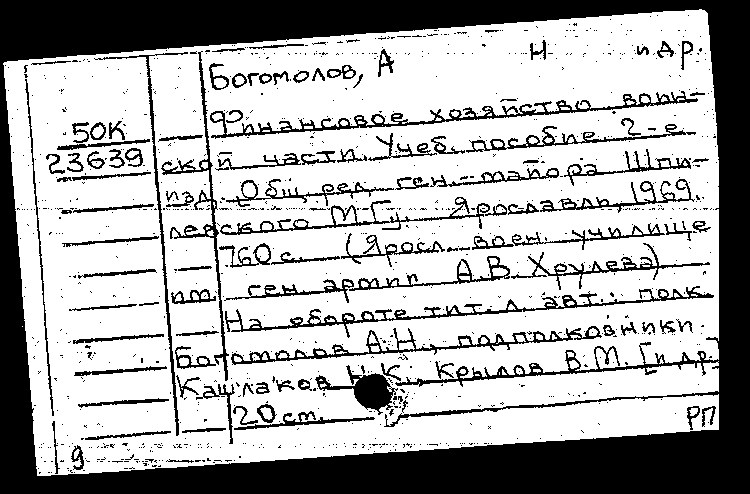 Богомолов, А Н и др.
Финансовое хозяйство воин-
50К
ской части. Учеб. пособие. 2-е
23639
изд. Общ. ред. ген.-майора Шпи-
левского М.Г. Ярославль, 1969.
760 с. (Яросл. воен. училище
им. ген. армии А.В. Хрулева)
На обороте тит. л. авт.: полк.
Богомолов А.Н., подполковники
Кашлаков Н.К., Крылов В.М. [и др.]
20 см.
РП
9